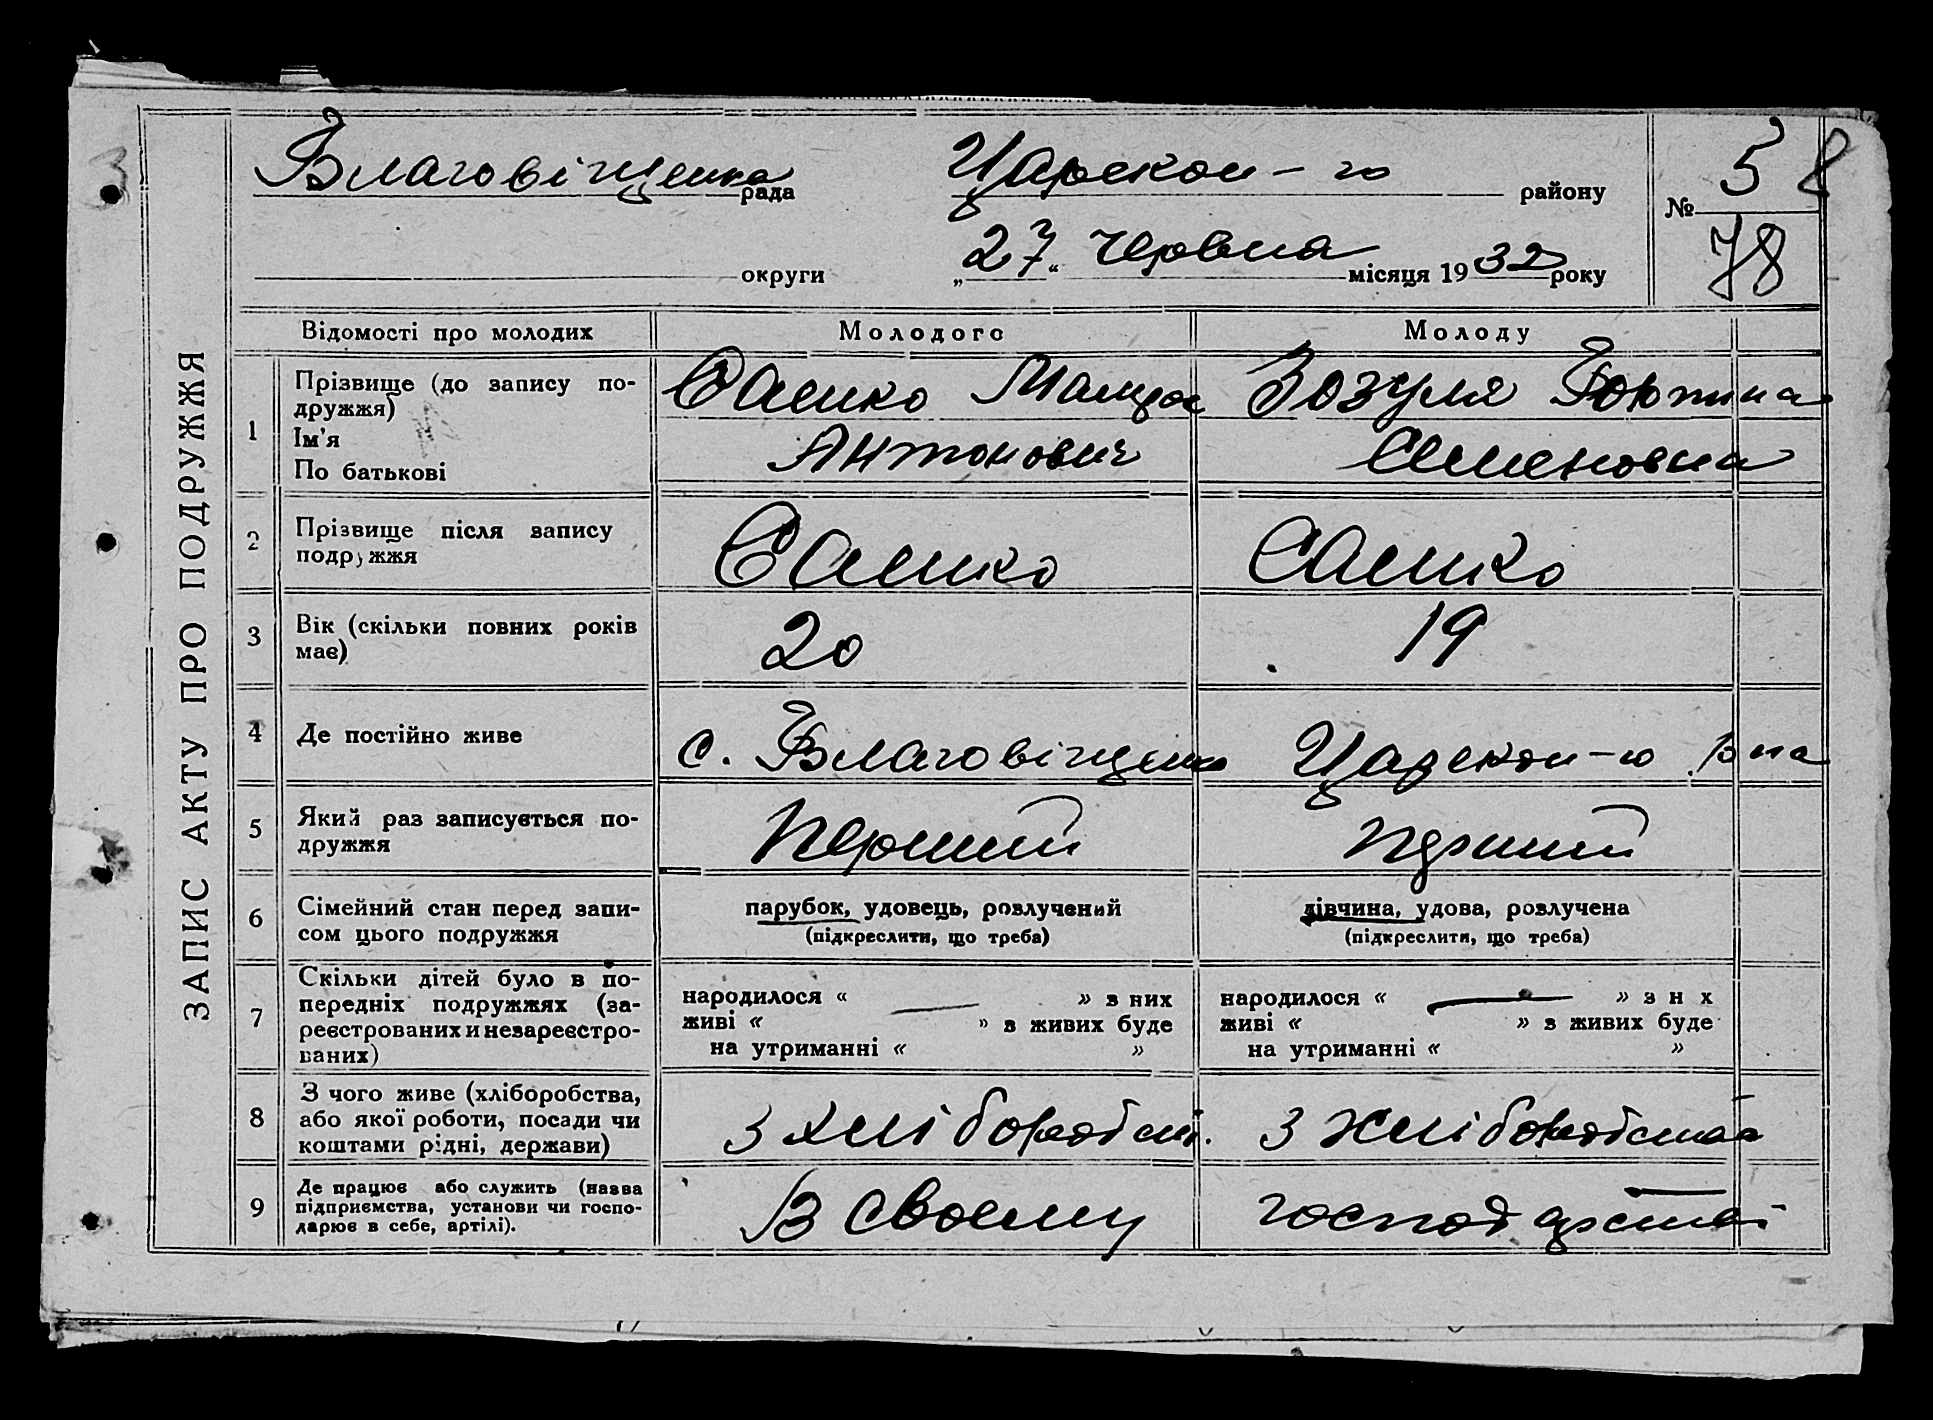 ЗАПИС АКТУ ПРО ПОДРУЖЖЯ
3
Благовіщенка рада Царскон-го району № 58
округи „27“ червна місяця 1932 року 78
Відомості про молодих Молодого Молоду
1 Прізвище (до запису по-
дружжя)
Ім'я
По батькові
Сашко
Антонович
Зозуля
Семеновна
2 Прізвище після запису
подружжя
Сашко Сашко
3 Вік (скільки повних років
має)
20 19
4 Де постійно живе с. Благовіщенка Царскон-го
5 Який раз записується по-
дружжя
перший перший
6 Сімейний стан перед запи-
сом цього подружжя
парубок, удовець, розлучений
(підкреслити, що треба)
дівчина, удова, розлучена
(підкреслити, що треба)
7 Скільки дітей було в по-
передніх подружжях (за-
реєстрованих и незареєстро-
ваних)
народилося « — » з них
живі « » з живих буде
на утриманні « »
народилося « — » з н х
живі « » з живих буде
на утриманні « »
8 З чого живе (хліборобства,
або якої роботи, посади чи
коштами рідні, держави)
з хліборобст. з хліборобства
9 Де працює або служить (назва
підприємства, установи чи госпо-
дарює в себе, артілі).
В своєму господарстві